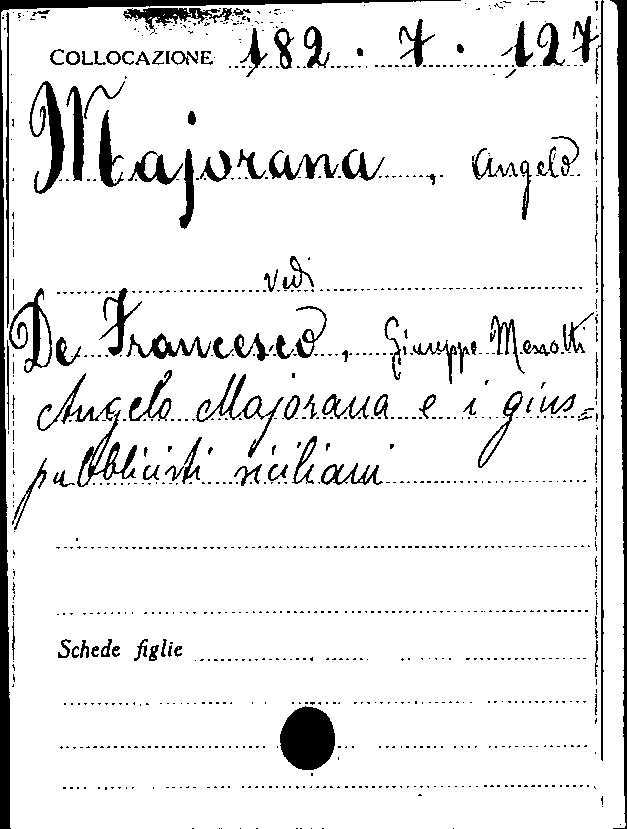 COLLOCAZIONE 182.7.127
Majorana, Angelo
vedi
De Francesco, Giuseppe Menotti
Angelo Majorana e i gius=
pubblicisti siciliani
Schede figlie